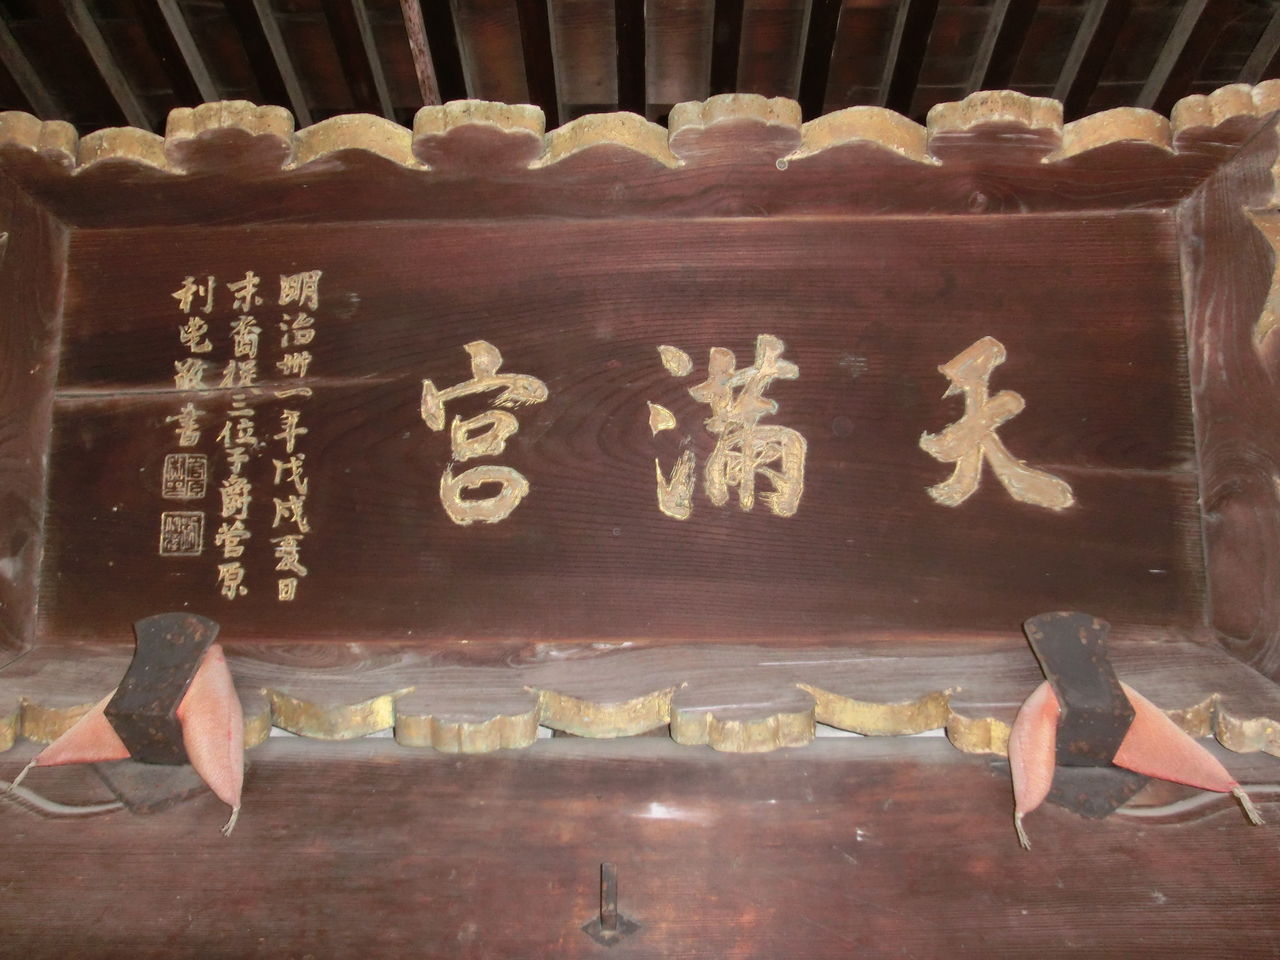 天満宮
明治卅一年戊戌夏日
末裔従三位子爵菅原
利鬯敬書